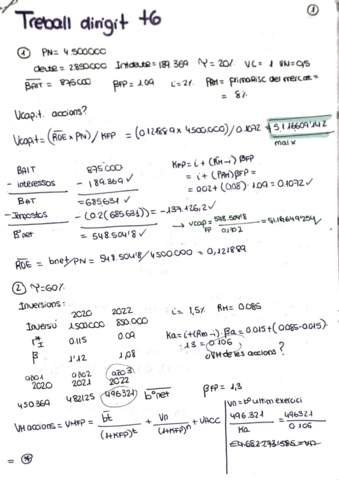 Treball dirigit t6
①
① PN = 4.500.000
deute = 2850000 Intdeute = 189.369 γ = 20% VC = 1 VN = 0/5
BAIT = 875000 βFP = 1.09 i = 2% PRM = prima risc del mercat =
= 8%
Vcap.t. accions?
Vcap.t = (RDE × PN) / KFP = (0.121889 × 4500.000) / 0.1072
BAIT 875.000
- interessos - 189.369 ✓
BAT = 685631 ✓
- Impostos - (0.2(685631)) = -137.126,2 ✓
Bºnet = 548.504'8 ✓
KFP = i + (RM - i) βFP
= i + (PRM) βFP =
= 0.02 + (0.08) · 1.09 = 0.1072 ✓
RDE = bnet/PN = 548.504'8 / 4500.000 = 0,121889
② γ = 60%
Inversions:
2020 2022
Inversió 1.500.000 850.000
0.115 0.09
β 1'12 1,08
i = 1,5% RM = 0.085
Ka = i + (RM - i) · βa = 0.015 + (0.085 - 0.015)
· 1.3 = 0.106
VM de les accions?
any1 any2 any3
2020 2021 2022
450.369 482125 496321 bºnet
βFP = 1,3
VM accions = VMFP = bt / (1+KFP)t + Vn / (1+KFP)n + VACC
Vn = bº ultim exercici
496.321 / Ka = 496321 / 0.106